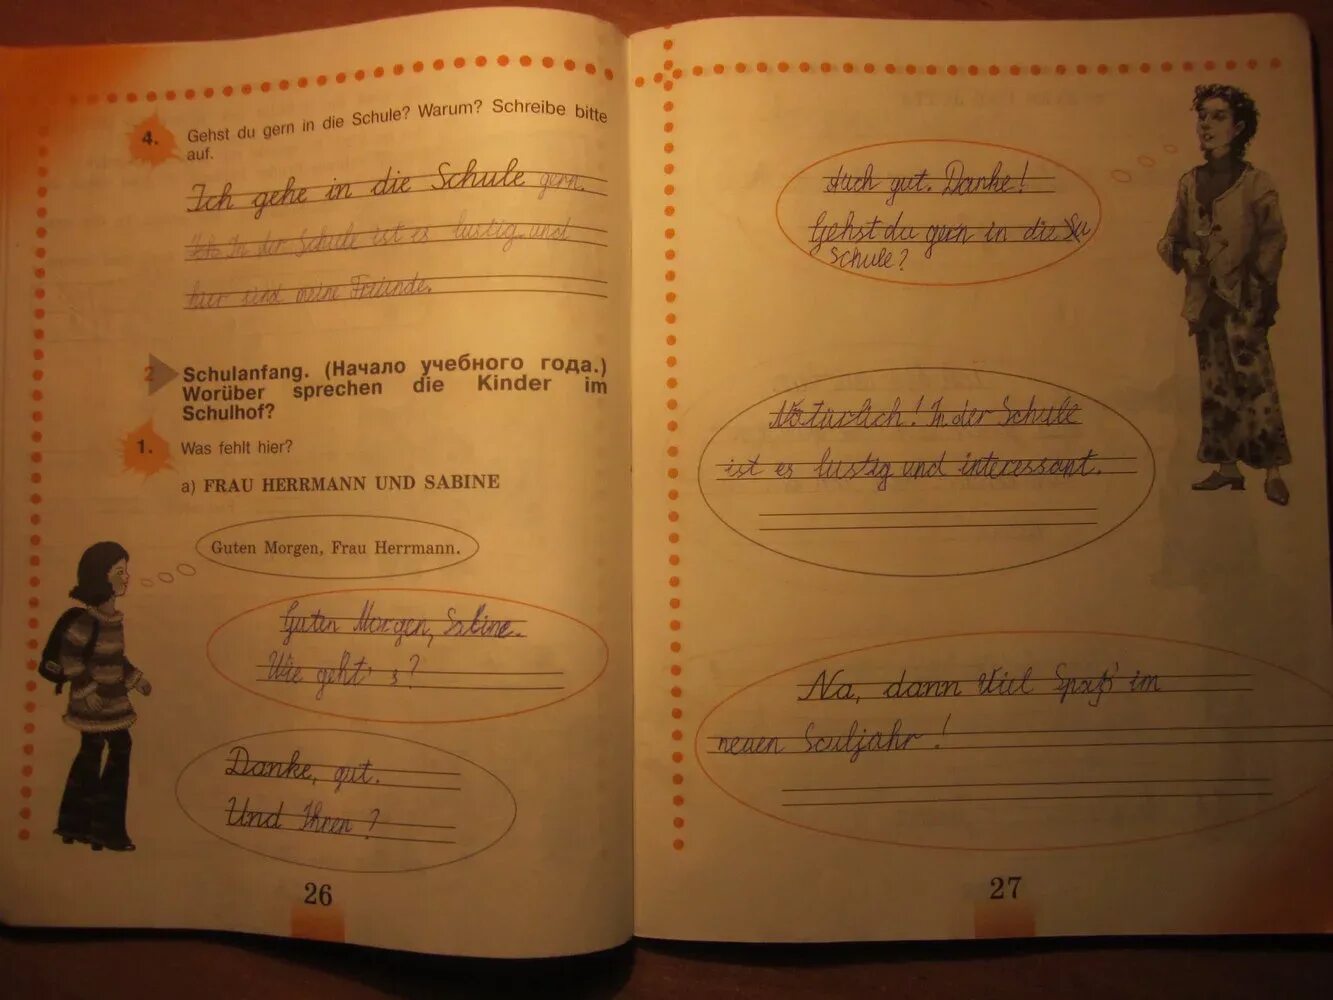 4. Gehst du gern in die Schule? Warum? Schreibe bitte
auf.
Ich gehe in die Schule gern.
In der Schule ist es lustig und
hier sind meine Freunde.
2 Schulanfang. (Начало учебного года.)
Worüber sprechen die Kinder im
Schulhof?
1. Was fehlt hier?
a) FRAU HERRMANN UND SABINE
Guten Morgen, Frau Herrmann.
Guten Morgen, Sabine.
Wie geht's?
Danke, gut.
Und Ihnen?
26
Auch gut. Danke!
Gehst du gern in die
Schule?
Natürlich! In der Schule
ist es lustig und interessant.
Na, dann Viel Spaß im
neuen Sculjahr!
27